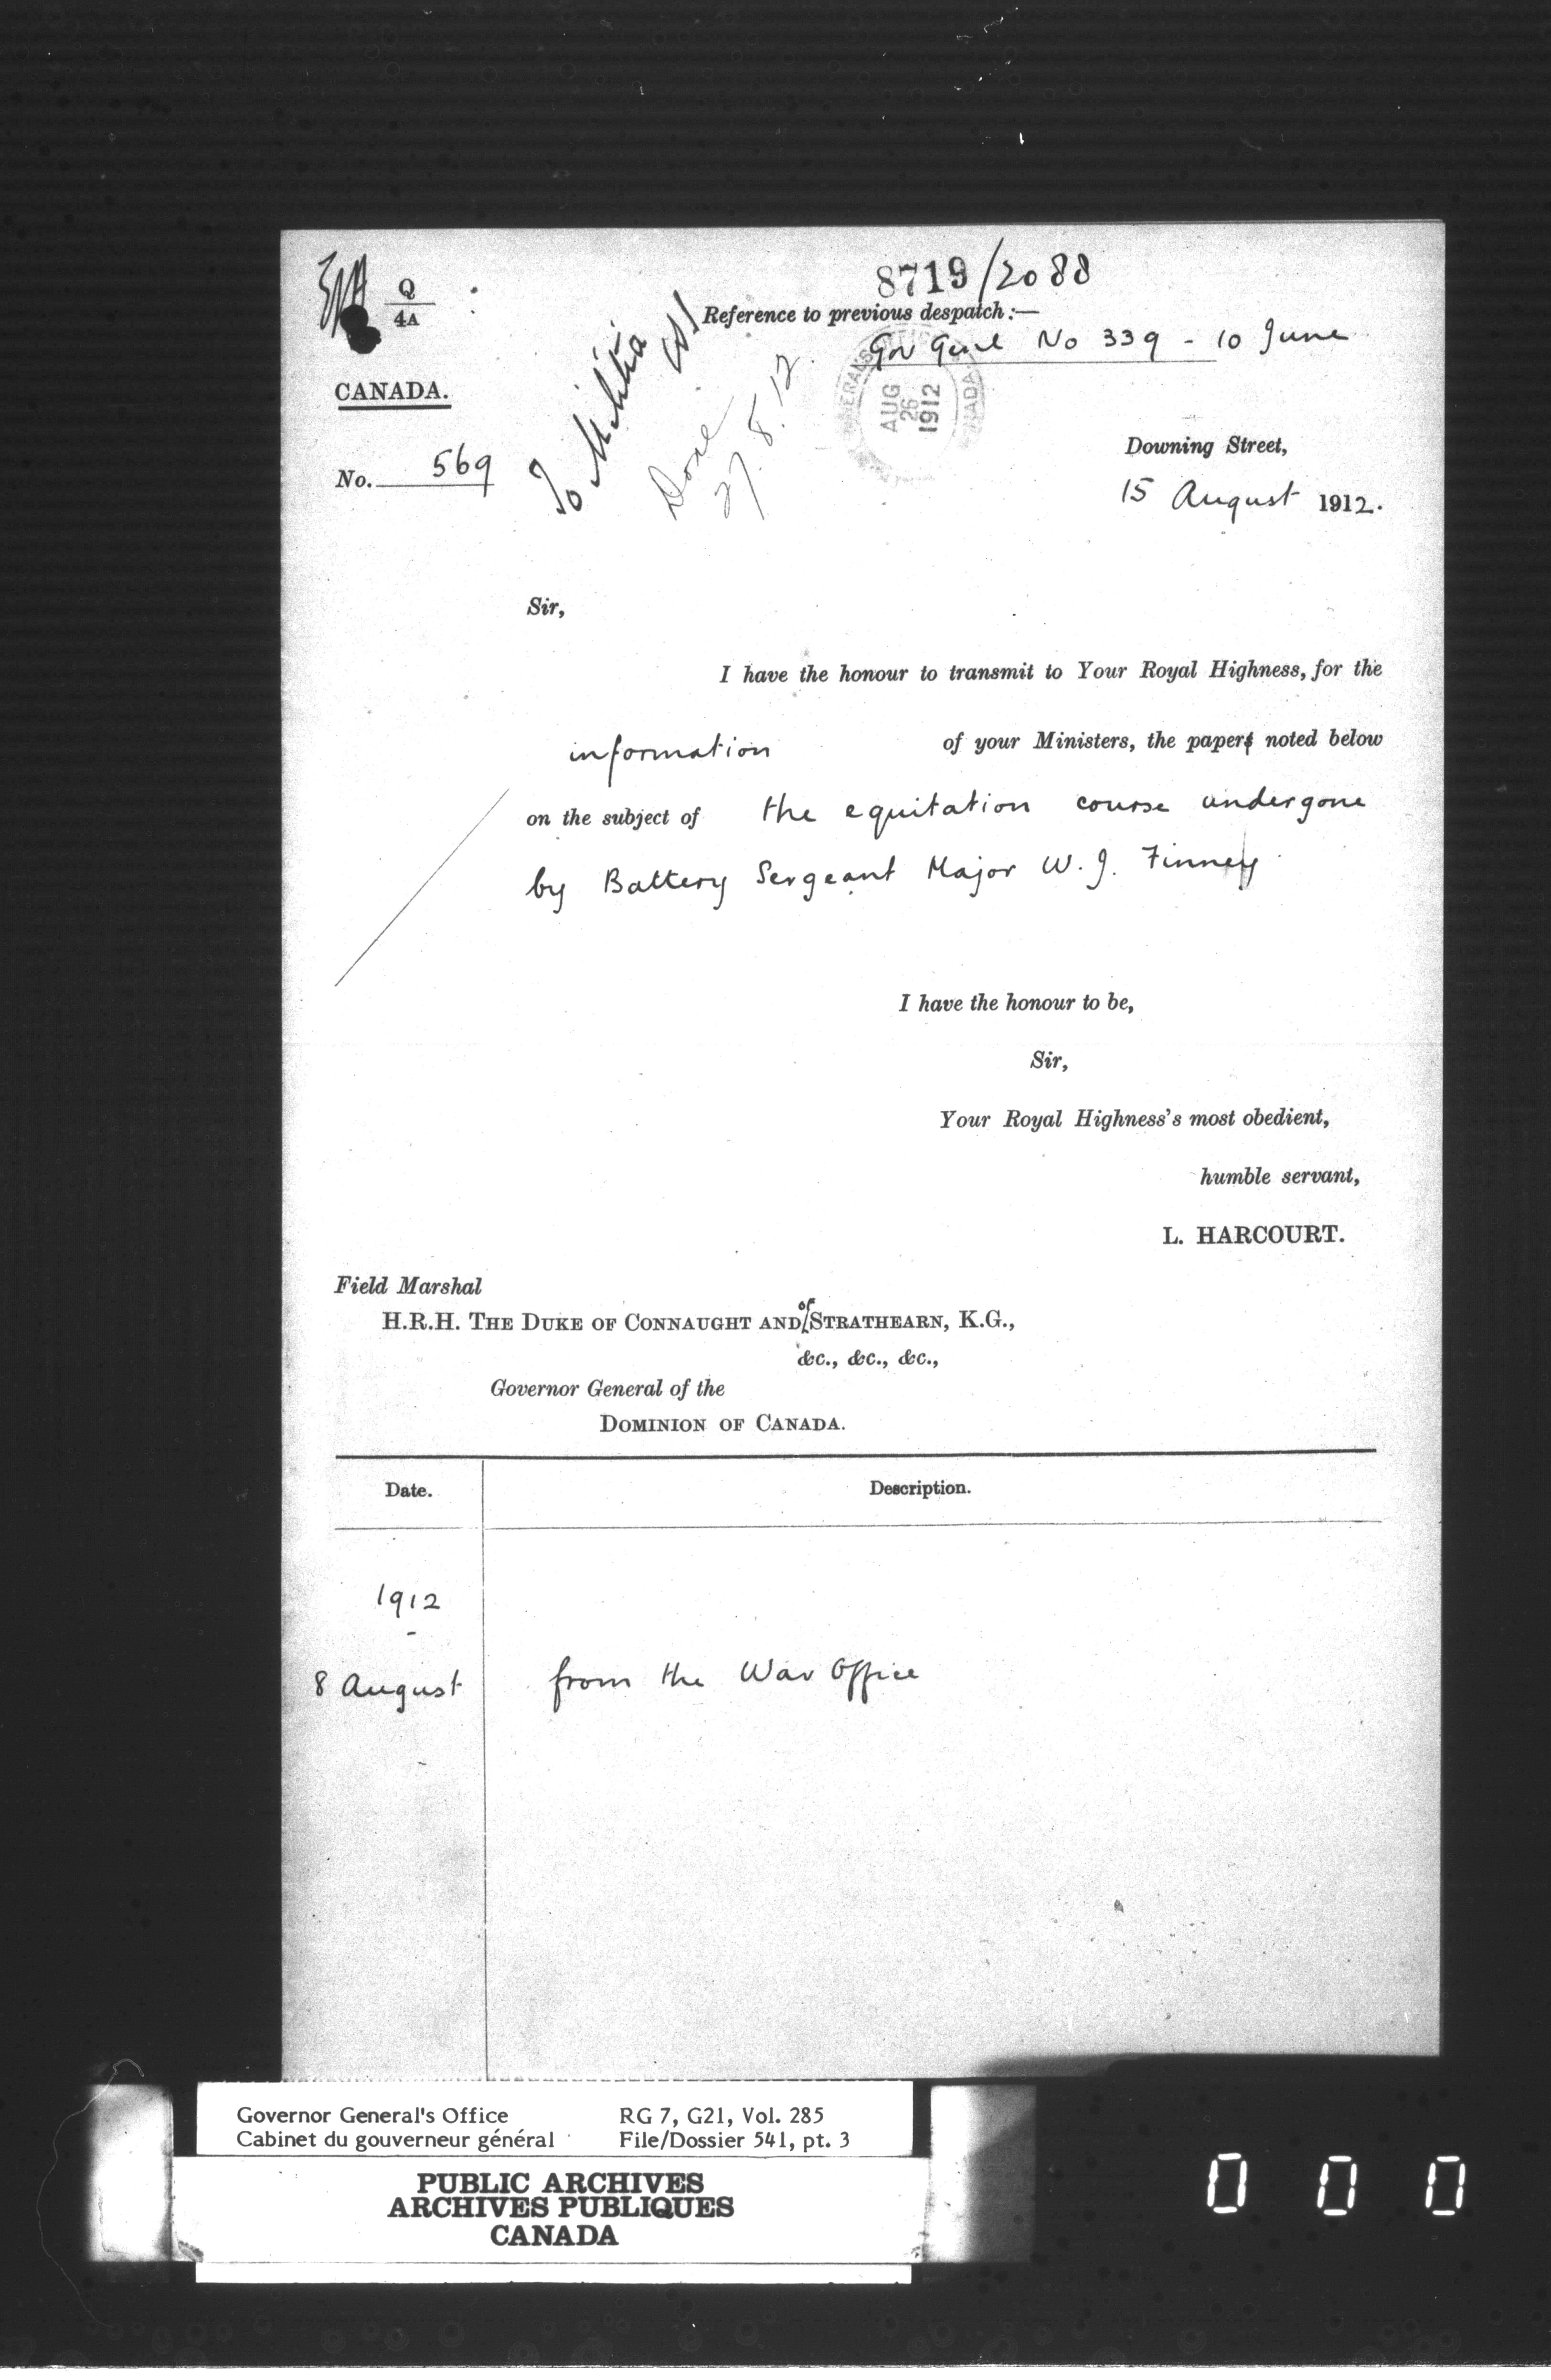 8719/2088
Q
4A
Reference to previous despatch :—
Gov Genl No 339 - 10 June
CANADA.
To Militia
Done
27.8.12.
AUG
26
1912
No. 569
Downing Street,
15 August 1912.
Sir,
I have the honour to transmit to Your Royal Highness, for the
information of your Ministers, the paper noted below
on the subject of the equitation course undergone
by Battery Sergeant Major W. J. Finney
I have the honour to be,
Sir,
Your Royal Highness's most obedient,
humble servant,
L. HARCOURT.
Field Marshal
H.R.H. THE DUKE OF CONNAUGHT AND of STRATHEARN, K.G.,
&c., &c., &c.,
Governor General of the
DOMINION OF CANADA.
Date. Description.
1912
8 August from the War Office
Governor General's Office RG 7, G21, Vol. 285
Cabinet du gouverneur général File/Dossier 541, pt. 3
PUBLIC ARCHIVES
ARCHIVES PUBLIQUES
CANADA
0 0 0